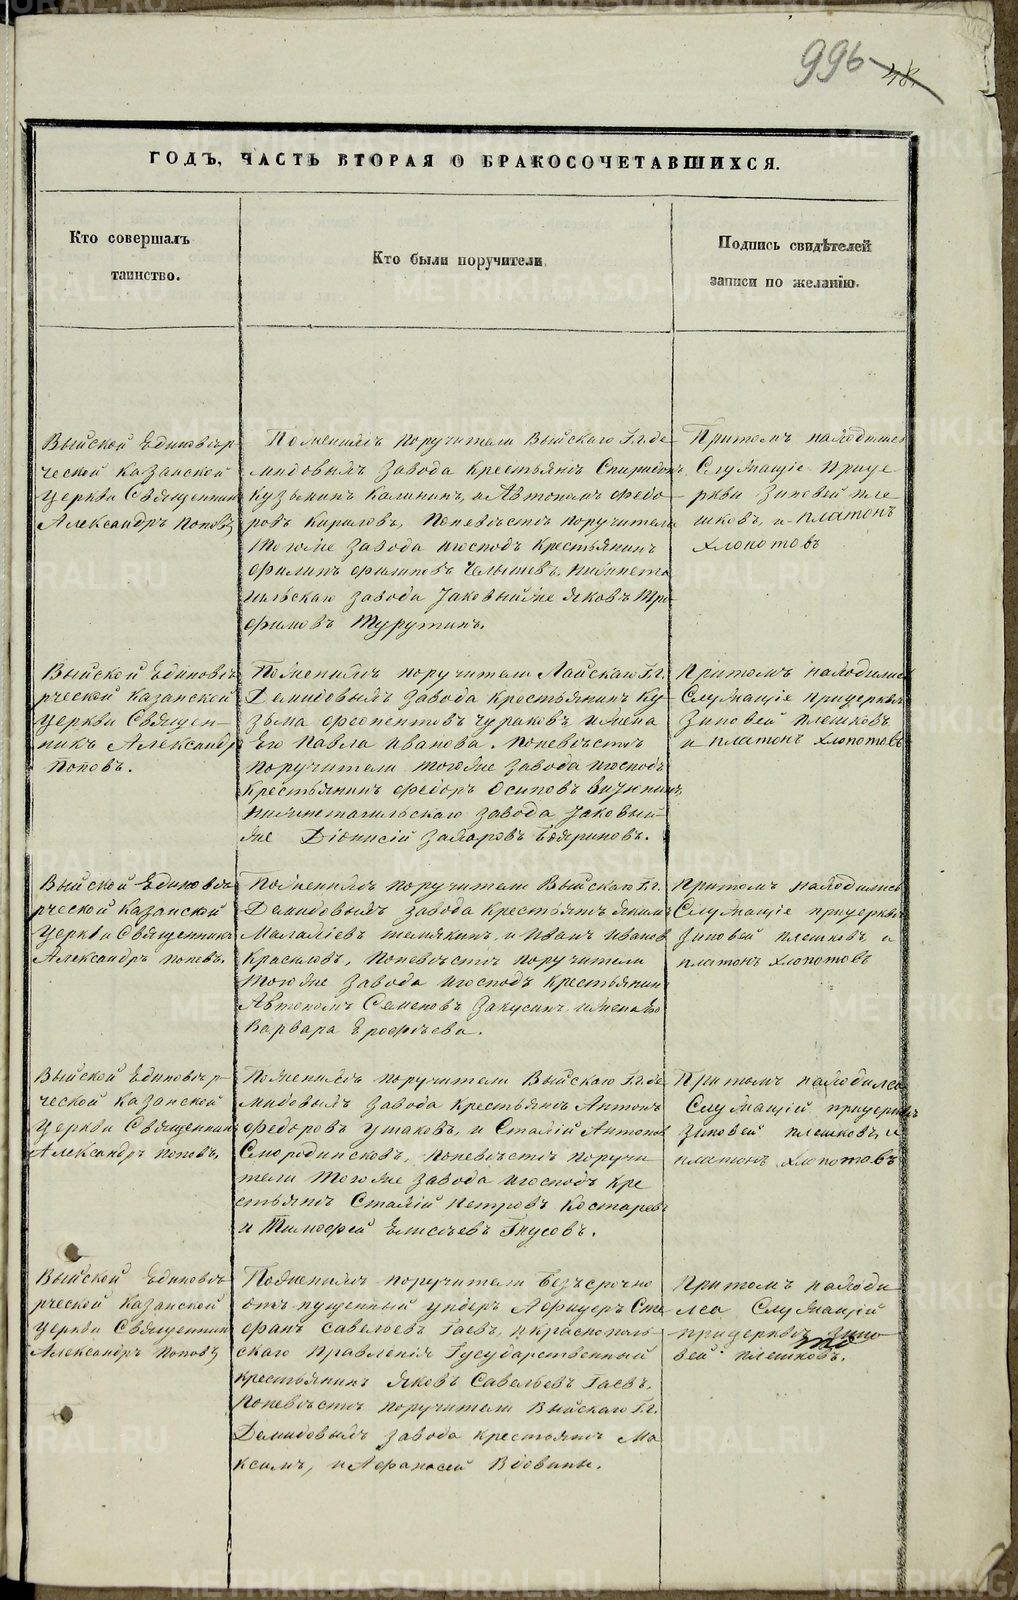 996
48.
ГОДЪ, ЧАСТЬ ВТОРАЯ О БРАКОСОЧЕТАВШИХСЯ.
Кто совершалъ
таинство.
Кто были поручители
Подпись свидѣтелей
записи по желанію.
Выйской Единовѣр
ческой Казанской
Церкви Священникъ
Александръ Поповъ
Поженихѣ поручители Выйскаго Г.г. Де
мидовыхъ завода крестьянѣ Спиридонъ
Кузьминъ Калининъ, и Автономъ Федо
ровъ Кириловъ, Поневѣстѣ поручители
тогоже завода игосподъ крестьянинъ
Филипъ Филиповъ Челышевъ, Нижнета
гильскаго завода Яковъ Тро
фимовъ Турутинъ.
Притомъ находились
Служащіе Прице
ркви Зиновей Пле
шковъ, и Платонъ
Хлопотовъ
Выйской Единовѣ
рческой Казанской
Церкви Священ
никъ Александръ
Поповъ.
Поженихѣ поручители Лайскаго Г.г.
Демидовыхъ завода крестьянинъ Ку
зьма Чураковъ ижена
Его Павла Иванова. Поневѣстѣ
поручители тогоже завода игосподъ
крестьянинъ Федоръ Осиповъ
Нижнетагильскаго завода
же Діонисій Захаровъ Бояриновъ.
Притомъ находились
Служащіе прицеркви
Зиновей Плешковъ
и Платонъ Хлопотовъ
Выйской Единовѣ
рческой Казанской
Церкви Священникъ
Александръ Поповъ.
Поженихѣ поручители Выйскаго Г.г.
Демидовыхъ завода крестьянѣ Якимъ
Малахіевъ Темякинъ, и Иванъ Ивановъ
Поневѣстѣ поручители
тогоже завода игосподъ крестьянинъ
Автономъ Семеновъ Закусинъ ижена Его
Варвара Ерофѣева.
Притомъ находились
Служащіе прицеркви
Зиновей Плешковъ, и
Платонъ Хлопотовъ
Выйской Единовѣр
ческой Казанской
Церкви Священникъ
Александръ Поповъ,
Поженихѣ поручители Выйскаго Г.г. Де
мидовыхъ завода крестьянѣ Антонъ
Федоровъ Ушаковъ, и Стахій Антоновъ
Смородинсковъ, Поневѣстѣ поручи
тели тогоже завода игосподъ кре
стьянѣ Стахій Петровъ Костаревъ
и Тимофей Елисѣевъ Гнусовъ.
Притомъ находилса
Служащій прицеркви
Зиновей Плешковъ, и
Платонъ Хлопотовъ
Выйской Единовѣ
рческой Казанской
Церкви Священникъ
Александръ Поповъ
Поженихѣ поручители Безъсрочно
отъ пущенный ундеръ Афицеръ Сте
фанъ Савельевъ Гаевъ, икраснополь
скаго Правленія Гусударственный
крестьянинъ Яковъ Савельевъ Гаевъ.
Поневѣстѣ поручители Выйскаго Г.г.
Демидовыхъ завода крестьянѣ Ма
ксимъ, и Афанасей Вдовины.
Притомъ находи
лса Служащій
прицерквѣ Зино
вей Плешковъ.